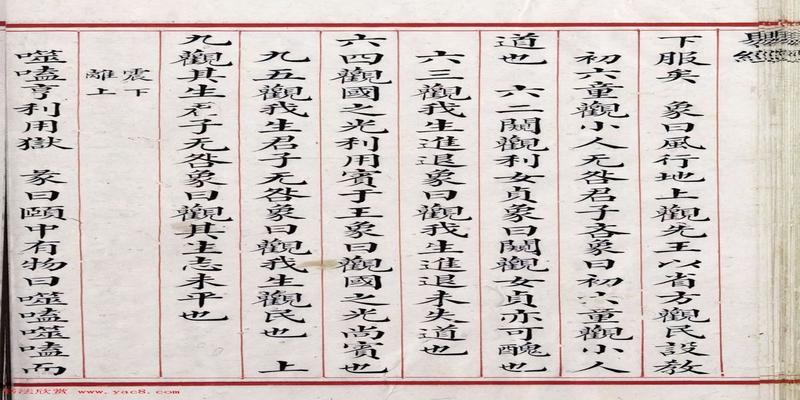 下服矣　象曰風行地上觀先王以省方觀民設教
初六童觀小人无咎君子吝象曰初六童觀小人
道也　六二闚觀利女貞象曰闚觀女貞亦可醜也
六三觀我生進退象曰觀我生進退未失道也
六四觀國之光利用賓于王象曰觀國之光尚賓也
九五觀我生君子无咎象曰觀我生觀民也　上
九觀其生君子无咎象曰觀其生志未平也
震下
離上
噬嗑亨利用獄　彖曰頤中有物曰噬嗑噬嗑而
法欣赏 www.yac8.com